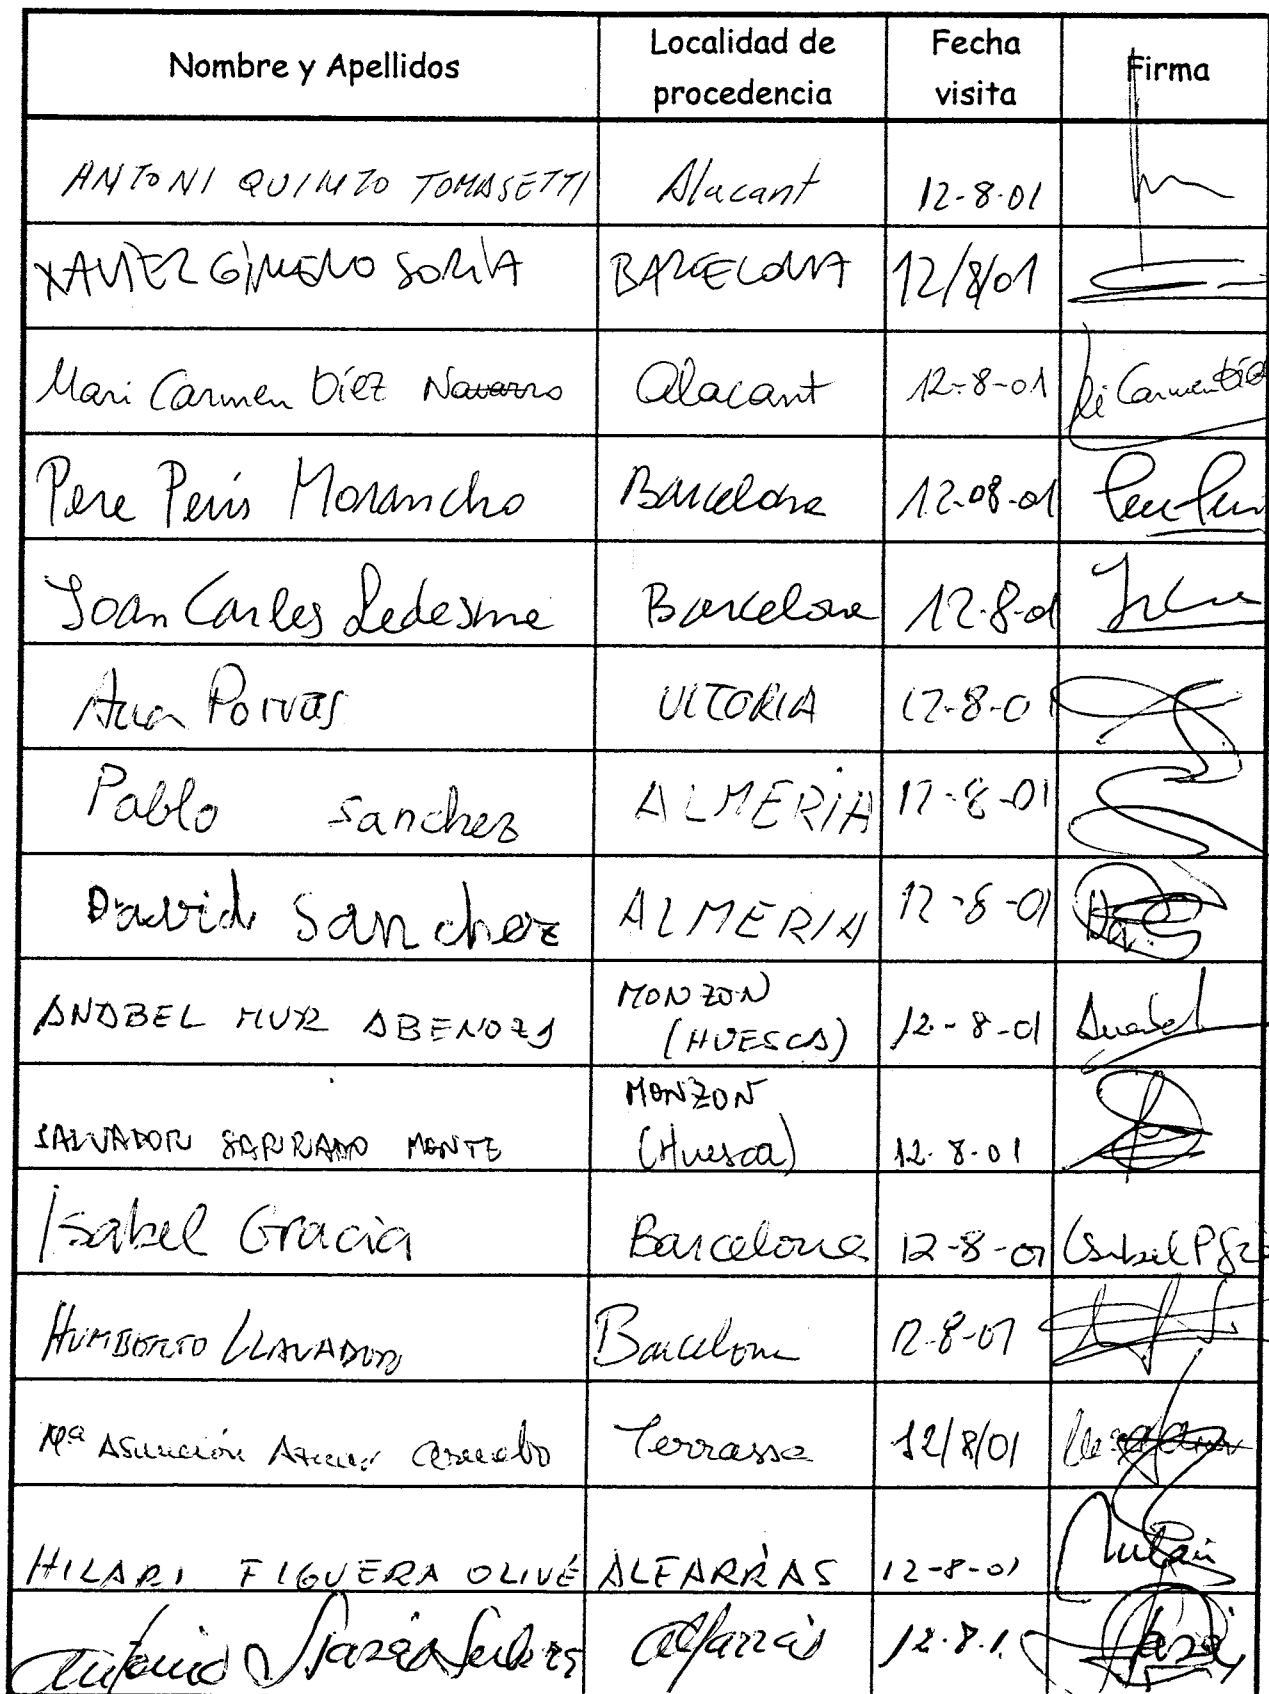 Nombre y Apellidos Localidad de procedencia Fecha visita Firma
ANTONI QUINTO TOMASETTI Alacant 12-8-01
XAVIER GIMENO SORIA BARCELONA 12/8/01
Mari Carmen Díez Navarro Alacant 12-8-01 Mª Carmen Díez
Pere Peris Morancho Barcelona 12-08-01
Joan Carles Ledesma Barcelona 12-8-01
Ana Porras VITORIA 12-8-01
Pablo Sanchez ALMERIA 12-8-01
David Sanchez ALMERIA 12-8-01
ANABEL MUR ABENOZA MONZON (HUESCA) 12-8-01 Anabel
SALVADOR SARRADO MONTE MONZON (Huesca) 12.8.01
Isabel Gracia Barcelona 12-8-01 Isabel
HUMBERTO LLAVADOR Barcelona 12-8-01
Mª Asunción Terrassa 12/8/01
HILARI FIGUERA OLIVÉ ALFARRÀS 12-8-01
Antonio Alfarràs 12.8.1